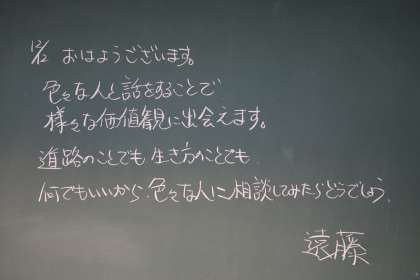 12/12 おはようございます。
色々な人と話をすることで
様々な価値観に出会えます。
進路のことでも 生き方のことでも
何でもいいから、色々な人に相談してみたらどうでしょう。
遠藤